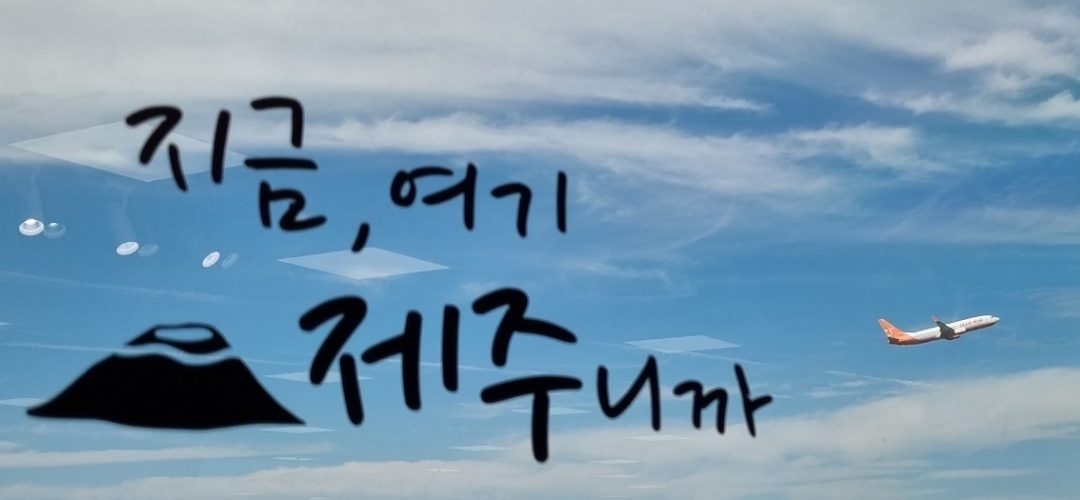 지금, 여기
제주니까